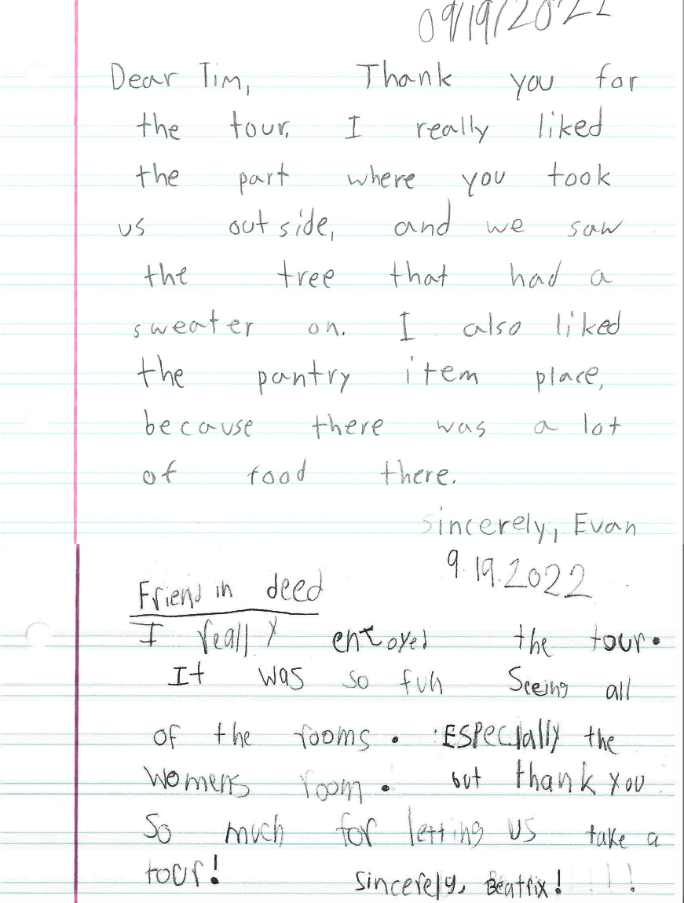 09/19/2022
Dear Tim, Thank you for
the tour. I really liked
the part where you took
us outside, and we saw
the tree that had a
sweater on. I also liked
the pantry item place,
because there was a lot
of food there.
Sincerely, Evan
9.19.2022
Friend in deed
I really enjoyed the tour.
It was so fun Seeing all
of the rooms. ESPecially the
womens room. but thank you
So much for letting us take a
tour!
Sincerely, Beatrix! ! ! !